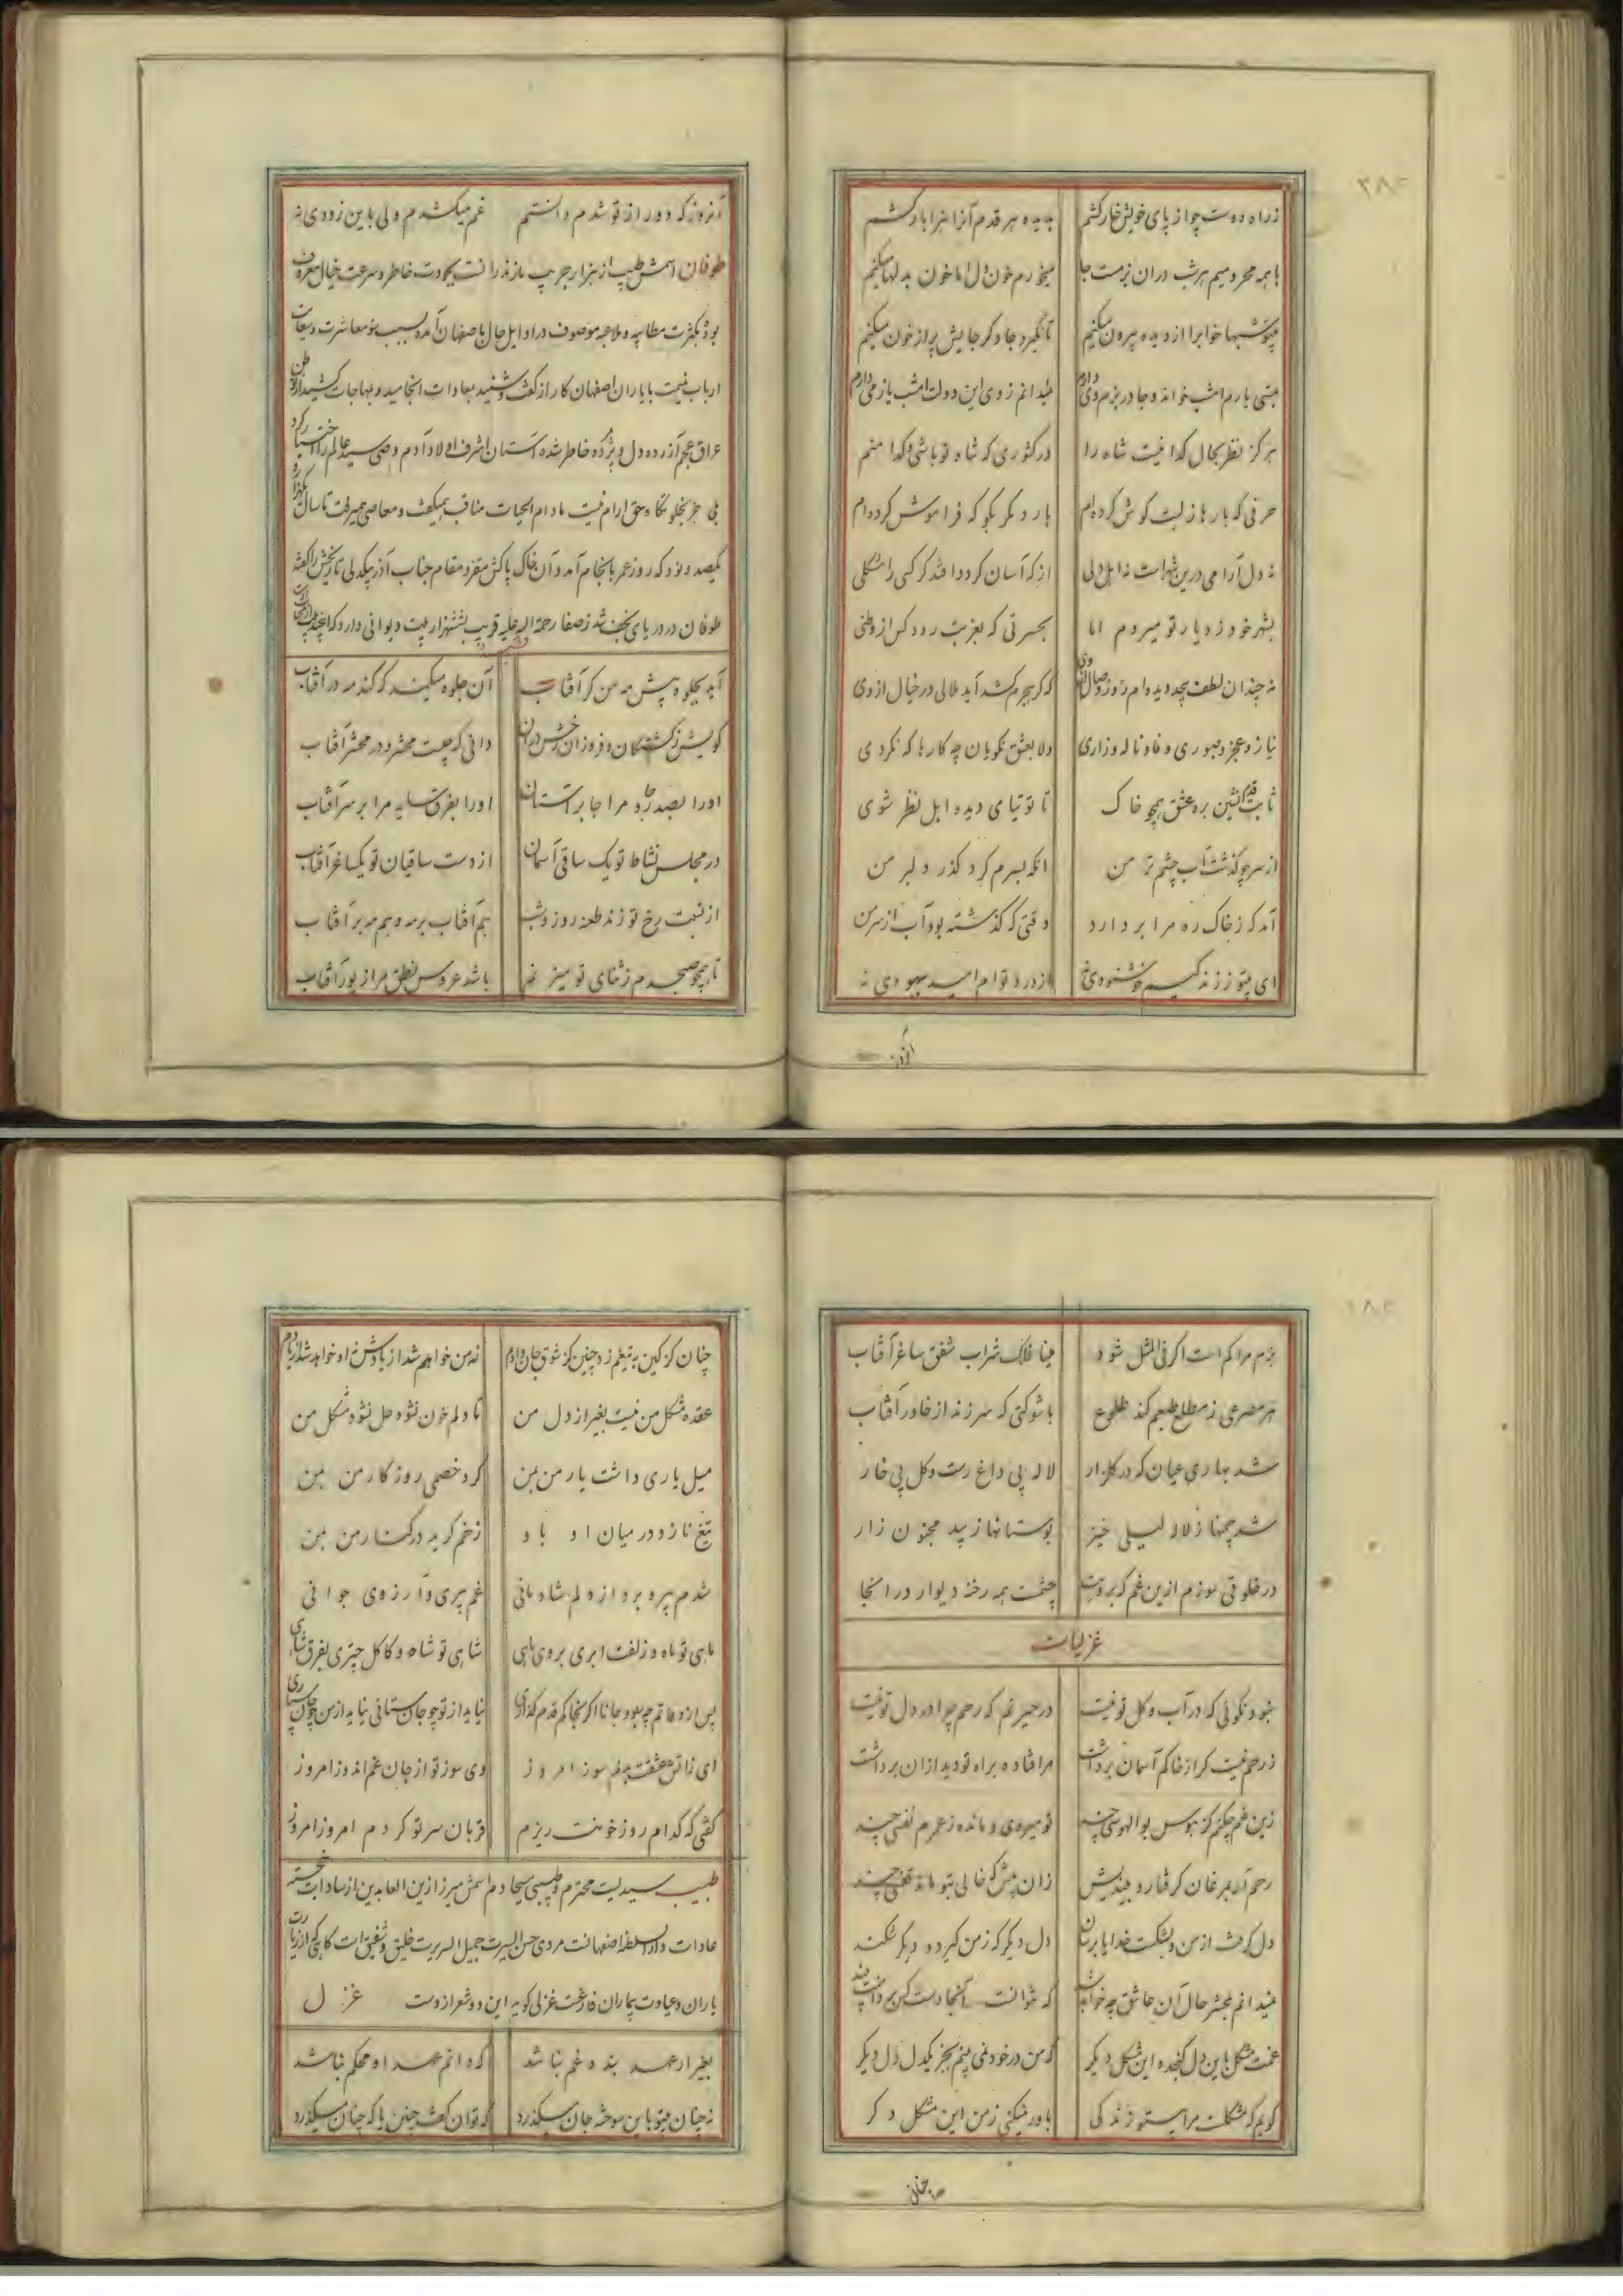 زراه دوست چو از پای خویش خار کشم بدیده هر قدم آزار هزار بار کشم
با همه محرومیم هر شب در ان بزمست جا میخورم خون دل اما خون بدلها میکنم
بیتو شبها خواب را از دیده بیرون میکنم تا نگیرد جا دگر جایش پر از خون میکنم
امشب خواند و جا در بزم وی دارم نمیدانم ز وی این دولت امشب یا ز می دارم
هرگز نظر بحال گدا نیست شاه را در کشوری که شاه تو باشی و گدا منم
حرفی که بارها ز لبت گوش کرده‌ام بار دگر بگو که فراموش کرده‌ام
نه دل آرامی درین شهر است نه اهل دلی از که آسان گردد افتد گر کسی را مشکلی
بشهر خود ز دیار تو میروم اما بحسرتی که بغربت رود کس از وطنی
نه چندان لطف بیحد دیده‌ام روز وصال از وی که گر هجرم کشد آید ملالی در خیال از وی
نیاز و عجز و صبوری و فا و ناله و زاری دلا بعشق نکویان چه کارها که نکردی
ثابت قدم نشین بره عشق همچو خاک تا توتیای دیده اهل نظر شوی
از سر چو گذشت آب چشم تر من آنکه بسرم کرد گذر دلبر من
آمد که ز خاک ره مرا بر دارد وقتی که گذشته بود آب از سر من
ای بیتو ز زندگیم خوشنودی نه از درد توام امید بهبودی نه
آنروز
آنروز که دور از تو شدم دانستم غم میکشدم ولی باین زودی نه
طوفان اسمش طیب از هزار جریب مازندرانست بجودت خاطر و سرعت خیال معروف
بود بکثرت مطایبه و ملاعبه موصوف در اوایل حال باصفهان آمده بسبب سوء معاشرت و سعایت
ارباب نمیمت با یاران اصفهان کار از گفت و شنید بمعادات انجامید و بمهاجات کشید از وطن
عراق عجم آزرده دل و پژمرده خاطر شده آستان اشرف اولاد آدم وصی سید عالم را اختیار کرد
بلی جز بخلوتگاه حق ارام نیست مادام الحیات مناقب همیگفت و معاصی همیرفت تا سال یکهزار و
یکصد و نود که روز عمر بانجام آمد و آن خاک پاکش مقر و مقام جناب آذر بیکدلی تاریخش را گفته
طوفان در دریای نجف شد ز صفا رحمة الله علیه قریب بششهزار بیت دیوانی دارد که این چند بیت از آن
آید بجلوه پیش مه من گر آفتاب آن جلوه میکند که کند مه در آفتاب
کویش ز کشتگان و فروزان رخش در ان دانی که چیست محشر و در محشر آفتاب
اورا بصدر جا و مرا جا بر آستان اورا بفرق سایه مرا بر سر آفتاب
در مجلس نشاط تو یک ساقی آسمان از دست ساقیان تو یکساغر آفتاب
از نسبت رخ تو زند طعنه روز و شب هم آفتاب بر مه و هم مه بر آفتاب
تا همچو صبحدم ز ثنای تو میزنم باشد عروس نطق مرا زیور آفتاب
بزم مرا کم است اگر فی المثل شود مینا فلک شراب شفق ساغر آفتاب
هر مصرعی ز مطلع طبعم کند طلوع با شوکتی که سر زند از خاور آفتاب
شد بهاری عیان که در گلزار لاله بی داغ رست و گل بی خار
شد چمنها ز لاله لیلی خیز بوستانها ز بید مجنون زار
در خلوتی سوزم ازین غم که برویت چشمست همه رخنه دیوار در انجا
غزلیات
بجز نکوئی که در آب و گل تو نیست در حیرتم که رحم چرا در دل تو نیست
ز رحم نیست گر از خاکم آسمان برداشت مرا فتاده براه تو دید از ان برداشت
زین غم چکنم کز هوس بوالهوسی چند تو میروی و مانده ز عمرم نفسی چند
رحم آر بمرغان گرفتار و بیندیش زان پیش که خالی بتو ماند قفسی چند
دل گرفت از من و بشکست خدایا برسان دل دیگر که ز من گیرد و دیگر شکند
نمیدانم بمحشر حال آن عاشق چه خواهد شد که نتوانست آنجا دست کس بر دامنت بیند
غمت مشکل باین دل گنجد و این مشکل دیگر که من در خود نمی بینم بجز یکدل دل دیگر
گویم که مشکلست مرا بیتو زندگی باور نمیکنی ز من این مشکل دگر
چنان
چنان کز کین به تیغم زد چنین کز شوق جان دادم نه من خواهم شد از یادش نه او خواهد شد از یادم
عقده مشکل من نیست بغیر از دل من تا دلم خون نشود حل نشود مشکل من
میل یاری داشت یار من بمن کرد خصمی روزگار من بمن
تیغ نازو در میان او باو زخم گریه در کنار من بمن
شدم پیر و برد از دلم شادمانی غم پیری و آرزوی جوانی
ماهی تو ماه و زلفت ابری بروی ماهی شاهی تو شاه و کاکل چتری بفرق شاهی
پس از وفاتم چه سود جانا اگر بخاکم قدم گذاری نیاید از تو چو جان ستانی نیاید از من چو جان سپاری
ای ز اتش عشقت بدلم سوز امروز وی سوز تو از جان غم اندوز امروز
گفتی که کدام روز خونت ریزم قربان سر تو گردم امروز امروز
طبیب سیدیست محترم و طبیبی مسیحا دم اسمش میرزا زین العابدین از سادات خجسته
عادات دار السلطنه اصفهانست مردی حسن السیرت جمیل السریرت خلیق و شفیق است گاهی که از زیارت
یاران و عیادت بیماران فارغست غزلی گوید این دو شعر ازوست غزل
بغیر از عهد بند و غم نباشد که دانم عهد او محکم نباشد
نه چنان بیتو باین سوخته جان میگذرد که توان گفت چنین یا که چنان میگذرد